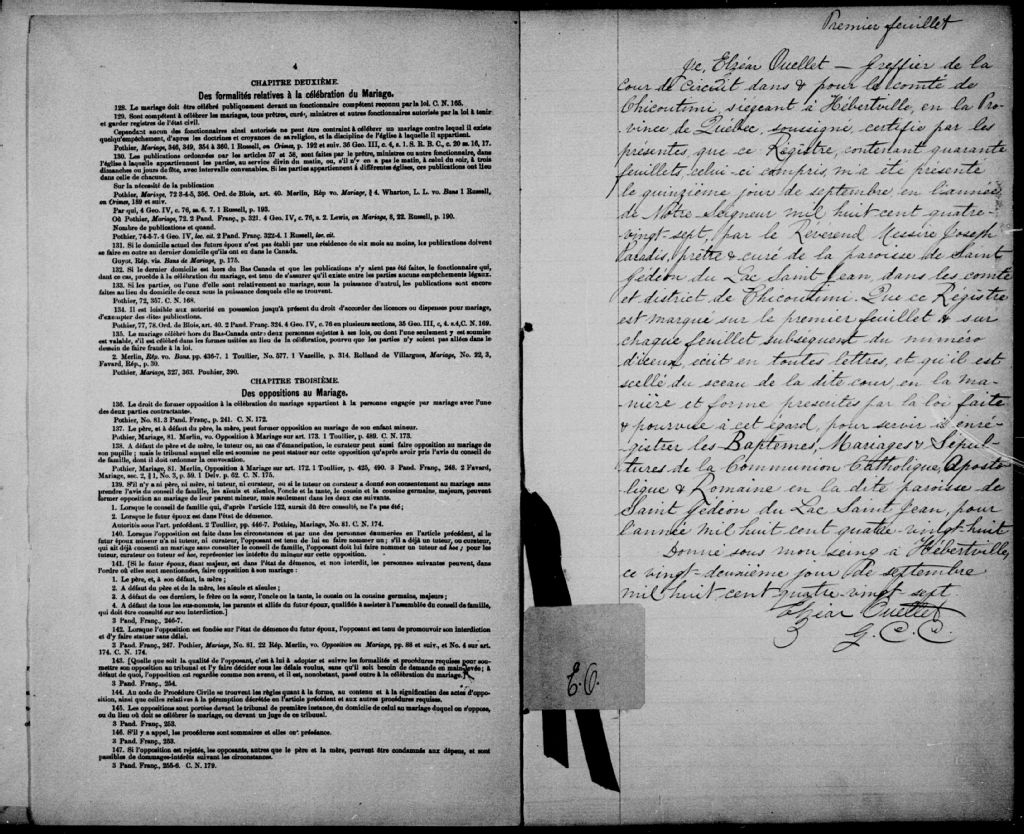 4
CHAPITRE DEUXIÈME.
Des formalités relatives à la célébration du Mariage.
128. Le mariage doit être célébré publiquement devant un fonctionnaire compétent reconnu par la loi. C. N. 165.
129. Sont compétents à célébrer les mariages, tous prêtres, curés, ministres et autres fonctionnaires autorisés par la loi à tenir
et garder registres de l'état civil.
Cependant aucun des fonctionnaires ainsi autorisés ne peut être contraint à célébrer un mariage contre lequel il existe
quelqu'empêchement, d'après les doctrines et croyances de sa religion, et la discipline de l'église à laquelle il appartient.
Pothier, Mariage, 346, 349, 354 à 360. 1 Russell, on Crimes, p. 192 et suiv. 36 Geo. III, c. 4, s. 1. S. R. B. C., c. 20 ss. 16, 17.
130. Les publications ordonnées par les articles 57 et 58, sont faites par le prêtre, ministre ou autre fonctionnaire, dans
l'église à laquelle appartiennent les parties, au service divin du matin, ou, s'il n'y en a pas le matin, à celui du soir, à trois
dimanches ou jours de fête, avec intervalle convenable. Si les parties appartiennent à différentes églises, ces publications ont lieu
dans celle de chacune.
Sur la nécessité de la publication
Pothier, Mariage, 72 3-4-5, 356. Ord. de Blois, art. 40. Merlin, Rép vo. Mariage, § 4. Wharton, L. L. vo. Bans 1 Russell,
on Crimes, 189 et suiv.
Par qui, 4 Geo. IV, c. 76, ss. 6, 7. 1 Russell, p. 193.
Où Pothier, Mariage, 72. 2 Pand. Franç., p. 321. 4 Geo. IV, c. 76, s. 2. Lewis, on Mariage, 8, 22. Russell, p. 190.
Nombre de publications et quand.
Pothier, 74-5-7. 4 Geo. IV, loc. cit. 2 Pand. Franç. 322-4. 1 Russell, loc. cit.
131. Si le domicile actuel des futurs époux n'est pas établi par une résidence de six mois au moins, les publications doivent
se faire en outre au dernier domicile qu'ils ont eu dans le Canada.
Guyot, Rép. vis. Bans de Mariage, p. 175.
132. Si le dernier domicile est hors du Bas Canada et que les publications n'y aient pas été faites, le fonctionnaire qui,
dans ce cas, procède à la célébration du mariage, est tenu de s'assurer qu'il existe entre les parties aucuns empêchements légaux.
133. Si les parties, ou l'une d'elles sont relativement au mariage, sous la puissance d'autrui, les publications sont encore
faites au lieu du domicile de ceux sous la puissance desquels elle se trouvent.
Pothier, 72, 357. C. N. 168.
134. Il est loisible aux autorités en possession jusqu'à présent du droit d'accorder des licences ou dispenses pour mariage,
d'exempter des dites publications.
Pothier, 77, 78. Ord. de Blois, art. 40. 2 Pand. Franç. 324. 4 Geo. IV, c. 76 en plusieurs sections, 35 Geo. III, c. 4. s.4, C. N. 169.
135. Le mariage célébré hors du Bas-Canada entre deux personnes sujettes à ses lois, ou dont l'une seulement y est soumise
est valable, s'il est célébré dans les formes usitées au lieu de la célébration, pourvu que les parties n'y soient pas allées dans le
dessein de faire fraude à la loi.
2 Merlin, Rép. vo. Bans. pp. 436-7. 1 Toullier, No. 577. 1 Vazeille, p. 314. Rolland de Villargues, Mariage, No. 22, 3,
Favard, Rép., p. 30.
Pothier, Mariage, 327, 363. Pouhier, 390.
CHAPITRE TROISIÈME.
Des oppositions au Mariage.
136. Le droit de former opposition à la célébration du mariage appartient à la personne engagée par mariage avec l'une
des deux parties contractantes.
Pothier, No. 81. 3 Pand. Franç., p. 241. C. N. 172.
137. Le père, et à défaut du père, la mère, peut former opposition au mariage de son enfant mineur.
Pothier, Mariage, 81. Merlin, vo. Opposition à Mariage sur art. 173. 1 Toullier, p. 489. C. N. 173.
138. A défaut de père et de mère, le tuteur ou, au cas d'émancipation, le curateur peut aussi faire opposition au mariage de
son pupille; mais le tribunal auquel elle est soumise ne peut statuer sur cette opposition qu'après avoir pris l'avis du conseil de
famille, dont il doit ordonner la convocation.
Pothier, Mariage, 81. Merlin, Opposition à Mariage sur art. 172. 1 Toullier, p. 425, 490. 3 Pand. Franç., 248. 2 Favard,
Mariage, sec. 2, § 1, No. 3, p. 59. 1 Delv. p. 62. C. N. 175.
139. S'il n'y a ni père, ni mère, ni tuteur, ni curateur, ou si le tuteur ou curateur a donné son consentement au mariage sans
prendre l'avis du conseil de famille, les aïeuls et aïeules, l'oncle et la tante, le cousin et la cousine germains, majeurs, peuvent
former opposition au mariage de leur parent mineur, mais seulement dans les deux cas suivants.
1. Lorsque le conseil de famille qui, d'après l'article 122, aurait dû être consulté, ne l'a pas été;
2. Lorsque le futur époux est dans l'état de démence.
Autorités sous l'art. précédent. 2 Toullier, pp. 446-7. Pothier, Mariage, No. 81. C. N. 174.
140. Lorsque l'opposition est faite dans les circonstances et par une des personnes énumérées en l'article précédent, si le
futur époux mineur n'a ni tuteur, ni curateur, l'opposant est tenu de lui en faire nommer un; s'il a déjà un tuteur, ou curateur,
qui ait déjà consenti au mariage sans consulter le conseil de famille, l'opposant doit lui faire nommer un tuteur ad hoc; pour les
tuteur, curateur ou tuteur ad hoc, représenter les intérêts du mineur sur cette opposition.
141. [Si le futur époux, étant majeur, est dans l'état de démence, et non interdit, les personnes suivantes peuvent, dans
l'ordre où elles sont mentionnées, faire opposition à son mariage :
1. Le père, et, à son défaut, la mère;
2. A défaut du père et de la mère, les aïeuls et aïeules;
3. A défaut de ces derniers, le frère ou la sœur, l'oncle ou la tante, le cousin ou la cousine germains, majeurs;
4. A défaut de tous les sus-nommés, les parents et alliés du futur époux, qualifiés à assister à l'assemblée du conseil de famille,
qui doit être consulté sur son interdiction.]
3 Pand. Franç., 246-7.
142. Lorsque l'opposition est fondée sur l'état de démence du futur époux, l'opposant est tenu de promouvoir son interdiction
et d'y faire statuer sans délai.
3 Pand. Franç., 247. Pothier, Mariage, No. 81. 22 Rép. Merlin, vo. Opposition au Mariage, pp. 88 et suiv., et No. 4 sur art.
174. C. N. 174.
143. [Quelle que soit la qualité de l'opposant, c'est à lui à adopter et suivre les formalités et procédures requises pour sou-
mettre son opposition au tribunal et l'y faire décider sous les délais voulus, sans qu'il soit besoin de demande en main-levée; à
défaut de quoi, l'opposition est regardée comme non avenu, et il est, nonobstant, passé outre à la célébration du mariage.]
3 Pand. Franç., 254.
144. Au code de Procédure Civile se trouvent les règles quant à la forme, au contenu et à la signification des actes d'oppo-
sition, ainsi que celles relatives à la péremption décrétée en l'article précédent et aux autres procédures requises.
145. Les oppositions sont portées devant le tribunal de première instance, du domicile de celui au mariage duquel on s'oppose,
ou du lieu où doit se célébrer le mariage, ou devant un juge de ce tribunal.
3 Pand. Franç., 253.
146. S'il y a appel, les procédures sont sommaires et elles ont préséance.
3 Pand. Franç., 253.
147. Si l'opposition est rejetée, les opposants, autres que le père et la mère, peuvent être condamnés aux dépens, et sont
passibles de dommages-intérêts suivant les circonstances.
3 Pand. Franç., 255-6. C. N. 179.
Premier feuillet
Je, Elzéar Ouellet – Greffier de la
Cour de Circuit dans & pour le comté de
Chicoutimi, siégeant à Hébertville, en la Pro-
vince de Québec, soussigné, certifie par les
présentes, que ce Registre, contenant quarante
feuillets, celui-ci compris, m'a été présenté
le quinzième jour de septembre en l'année
de Notre-Seigneur mil huit cent quatre-
vingt-sept, par le Révérend Messire Joseph
Paradis, prêtre & curé de la paroisse de Saint
Gédéon du Lac Saint Jean, dans les comté
et district de Chicoutimi. Que ce Régistre
est marqué sur le premier feuillet & sur
chaque feuillet subséquent du numéro
d'iceux, écrit en toutes lettres, et qu'il est
scellé du sceau de la dite cour, en la ma-
nière et forme présentés par la loi faite
& pourvue à cet égard, pour servir à enre-
gistrer les Baptêmes, Mariages & Sépul-
tures de la Communion Catholique, Aposto-
lique & Romaine en la dite paroisse de
Saint Gédéon du Lac Saint Jean, pour
l'année mil huit cent quatre-vingt-huit
Donné sous mon seing à Hébertville,
ce vingt-deuxième jour de septembre
mil huit cent quatre vingt sept
Elzéar Ouellet
G. C. C.
E. O.